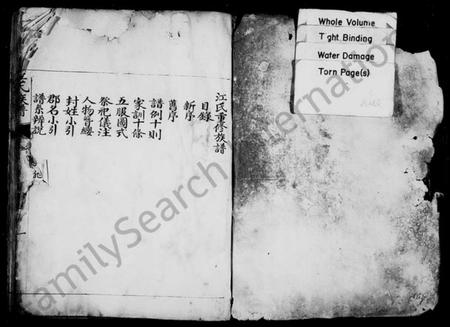 江氏重修族譜
目錄
新序
舊序
譜例十則
家訓十條
五服圖式
祭祀儀注
人物簪纓
封姓小引
郡名小引
譜系辨説
氏族譜
Whole Volume
T ght Binding
Water Damage
Torn Page(s)
FamilySearch International